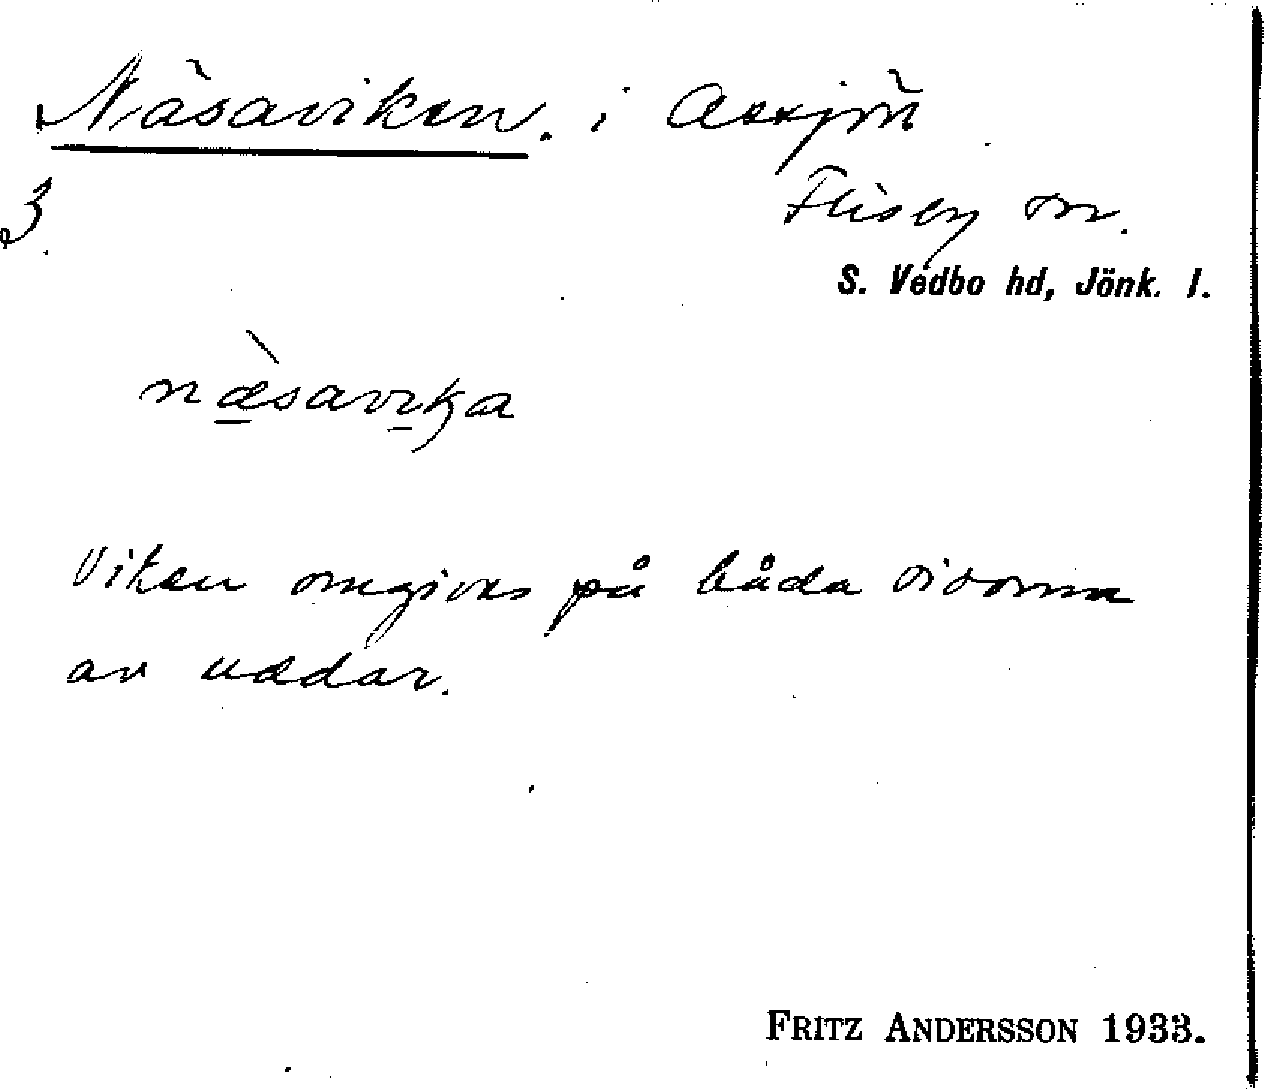 Näsaviken. i Assjön
3.
Flisby sn.
S. Vedbo hd, Jönk. l.
næ̀savika
Viken omgives på båda sidorna
av uddar.
FRITZ ANDERSSON 1933.